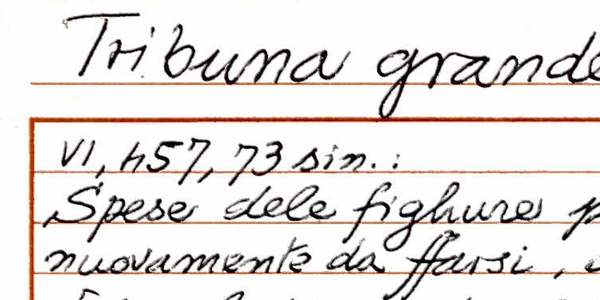 Tribuna grande
VI, 457, 73 sin.:
Spese dele fighure
nuovamente da ffarsi,